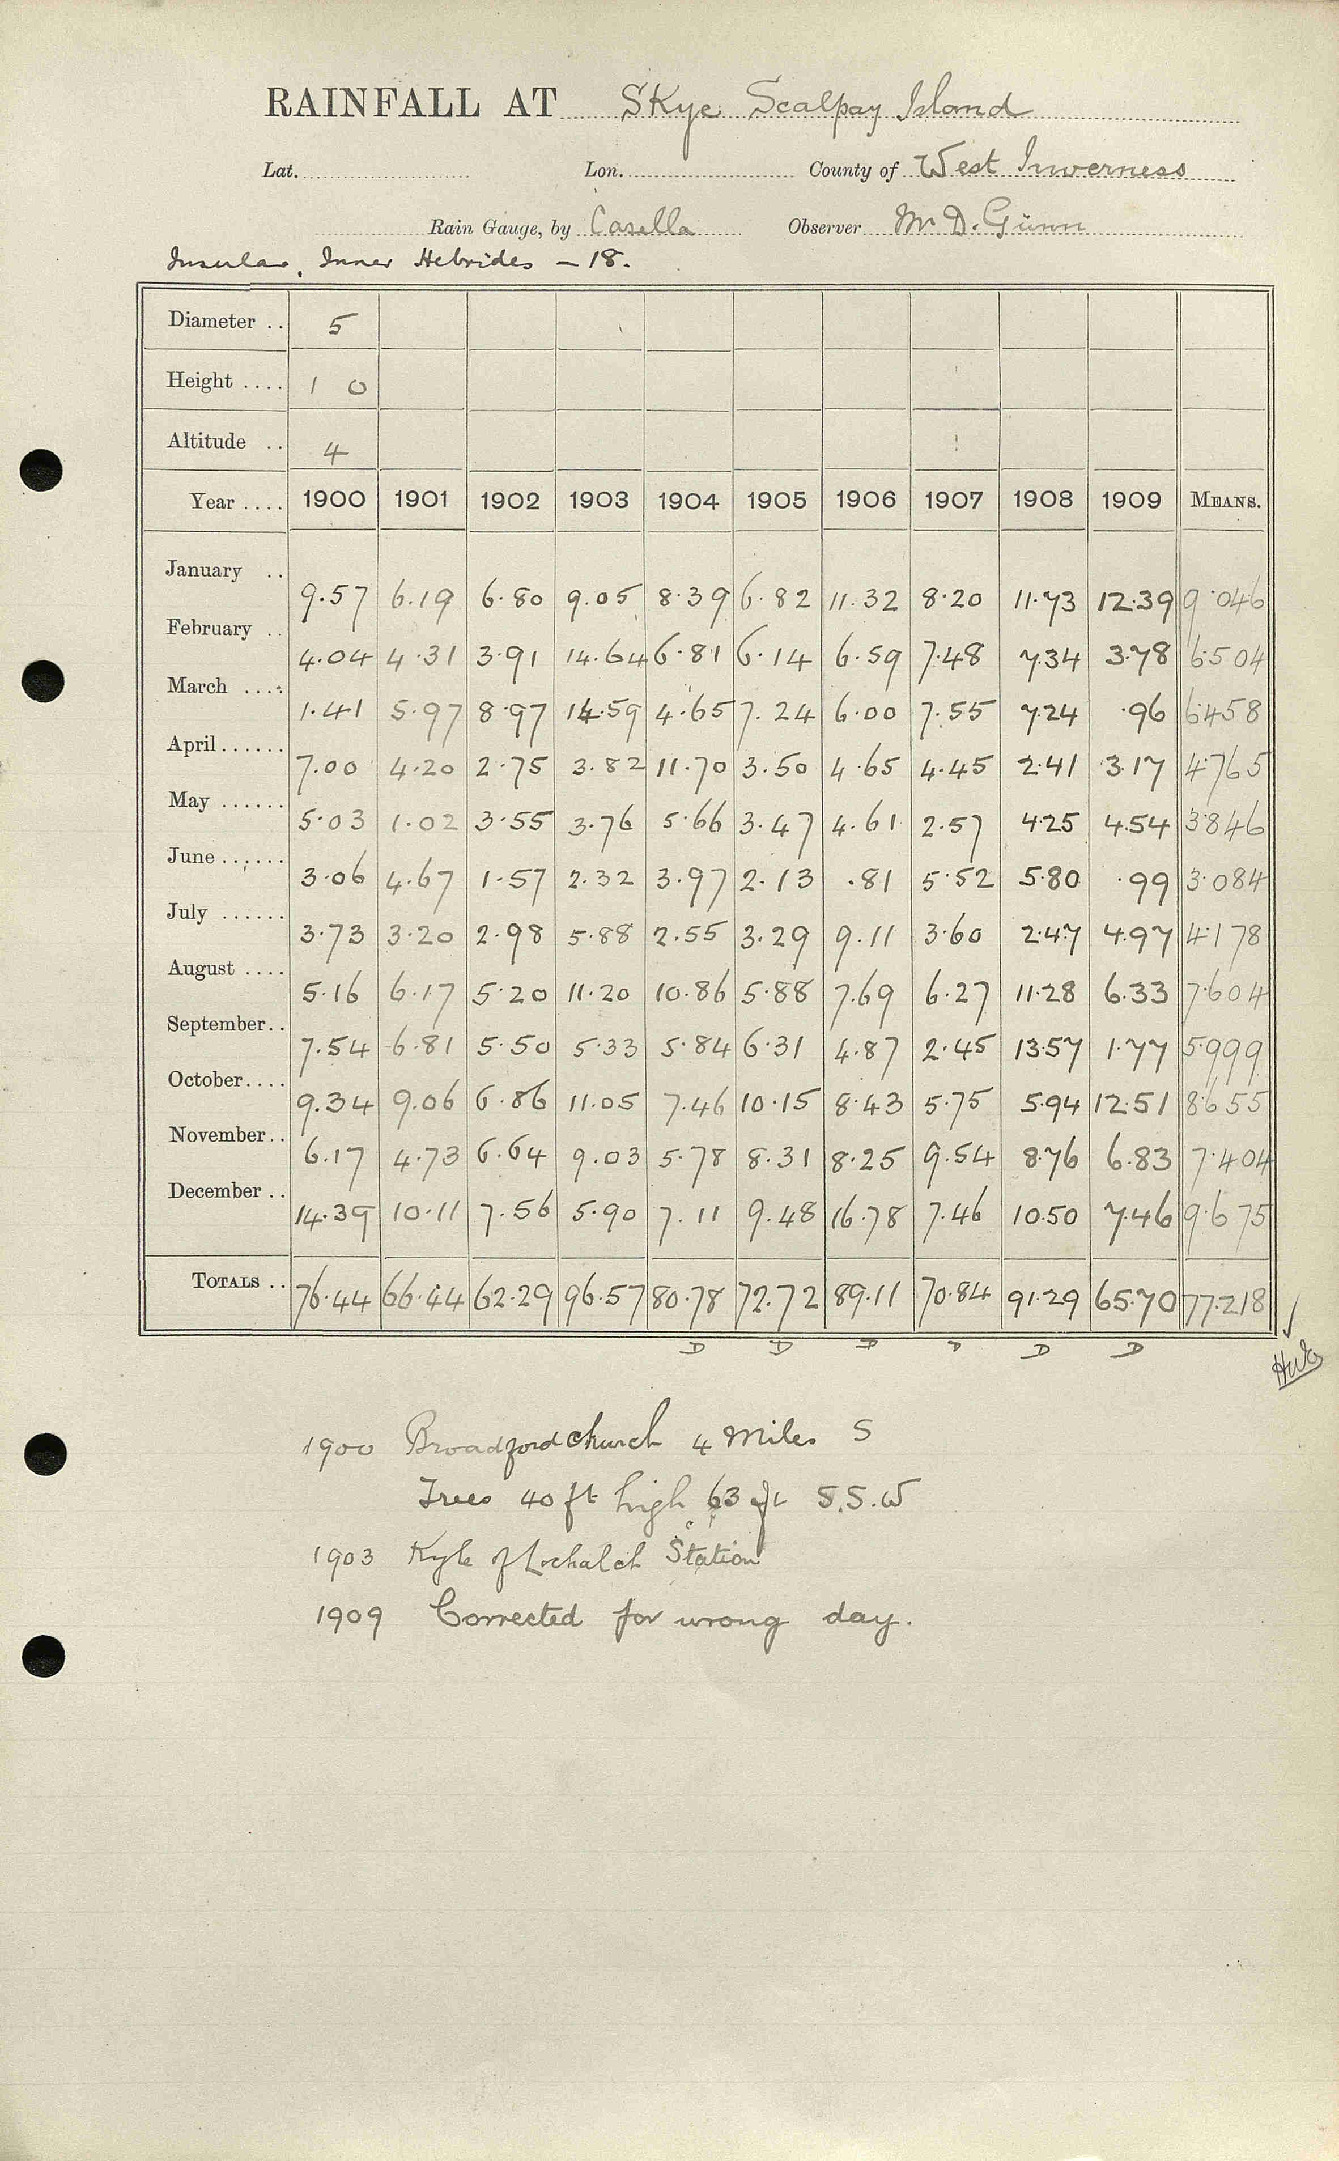 RAINFALL AT Skye Scalpay Island
Lat. Lon. County of West Inverness
Rain Gauge, by Casella Observer Mr D. Gunn
Insular, Inner Hebrides – 18.
Diameter .. 5
Height .... 1 0
Altitude .. 4
Year .... 1900 1901 1902 1903 1904 1905 1906 1907 1908 1909 MEANS.
January .. 9.57 6.19 6.80 9.05 8.39 6.82 11.32 8.20 11.73 12.39 9.046
February .. 4.04 4.31 3.91 14.64 6.81 6.14 6.59 7.48 7.34 3.78 6.504
March .... 1.41 5.97 8.97 14.59 4.65 7.24 6.00 7.55 7.24 .96 6.458
April ...... 7.00 4.20 2.75 3.82 11.70 3.50 4.65 4.45 2.41 3.17 4.765
May ...... 5.03 1.02 3.55 3.76 5.66 3.47 4.61 2.57 4.25 4.54 3.846
June ...... 3.06 4.67 1.57 2.32 3.97 2.13 .81 5.52 5.80 .99 3.084
July ...... 3.73 3.20 2.98 5.88 2.55 3.29 9.11 3.60 2.47 4.97 4.178
August .... 5.16 6.17 5.20 11.20 10.86 5.88 7.69 6.27 11.28 6.33 7.604
September.. 7.54 6.81 5.50 5.33 5.84 6.31 4.87 2.45 13.57 1.77 5.999
October.... 9.34 9.06 6.86 11.05 7.46 10.15 8.43 5.75 5.94 12.51 8.655
November.. 6.17 4.73 6.64 9.03 5.78 8.31 8.25 9.54 8.76 6.83 7.404
December .. 14.39 10.11 7.56 5.90 7.11 9.48 16.78 7.46 10.50 7.46 9.675
TOTALS .. 76.44 66.44 62.29 96.57 80.78 72.72 89.11 70.84 91.29 65.70 77.218
D D D D D D
1900 Broadford Church 4 Miles S
Trees 40 ft high 63 ft S.S.W
1903 Kyle of Lochalch Station
1909 Corrected for wrong day.